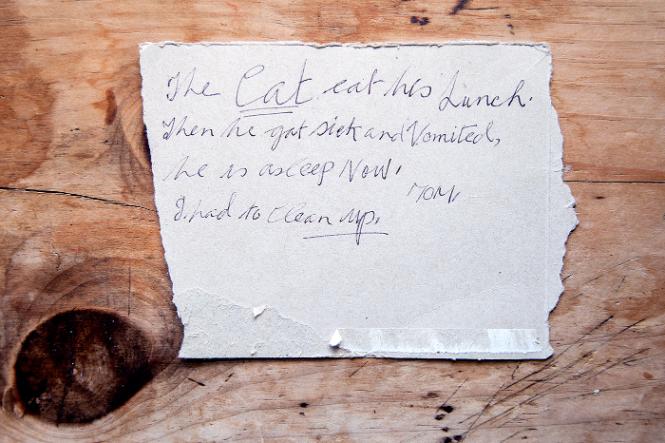 The Cat eat his Lunch.
Then he got sick and Vomited,
he is asleep Now.
TOM.
I had to Clean up.